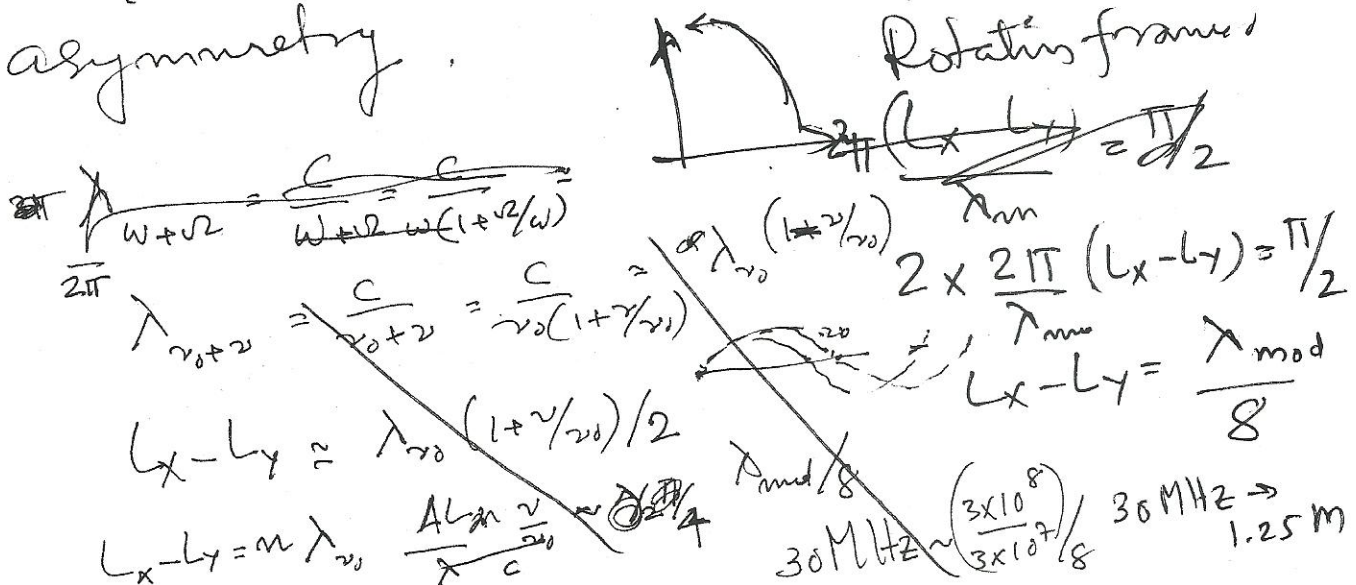 asymmetry.
Rotating frame
2π (Lx Ly) / λm = π/2
λ/2π ω+Ω = C/(ω+Ω) = C/(ω(1+Ω/ω)) =
λν0+ν = C/(ν0+ν) = C/(ν0(1+ν/ν0)) = λν0 (1-ν/ν0)
2 × 2π/λmo (Lx-Ly) = π/2
Lx-Ly = λmod/8
Lx-Ly ≃ λν0 (1+ν/ν0)/2
λmod/8
Lx-Ly = n λν0
30MHz ~ (3×10^8/3×10^7)/8 30MHz → 1.25 M